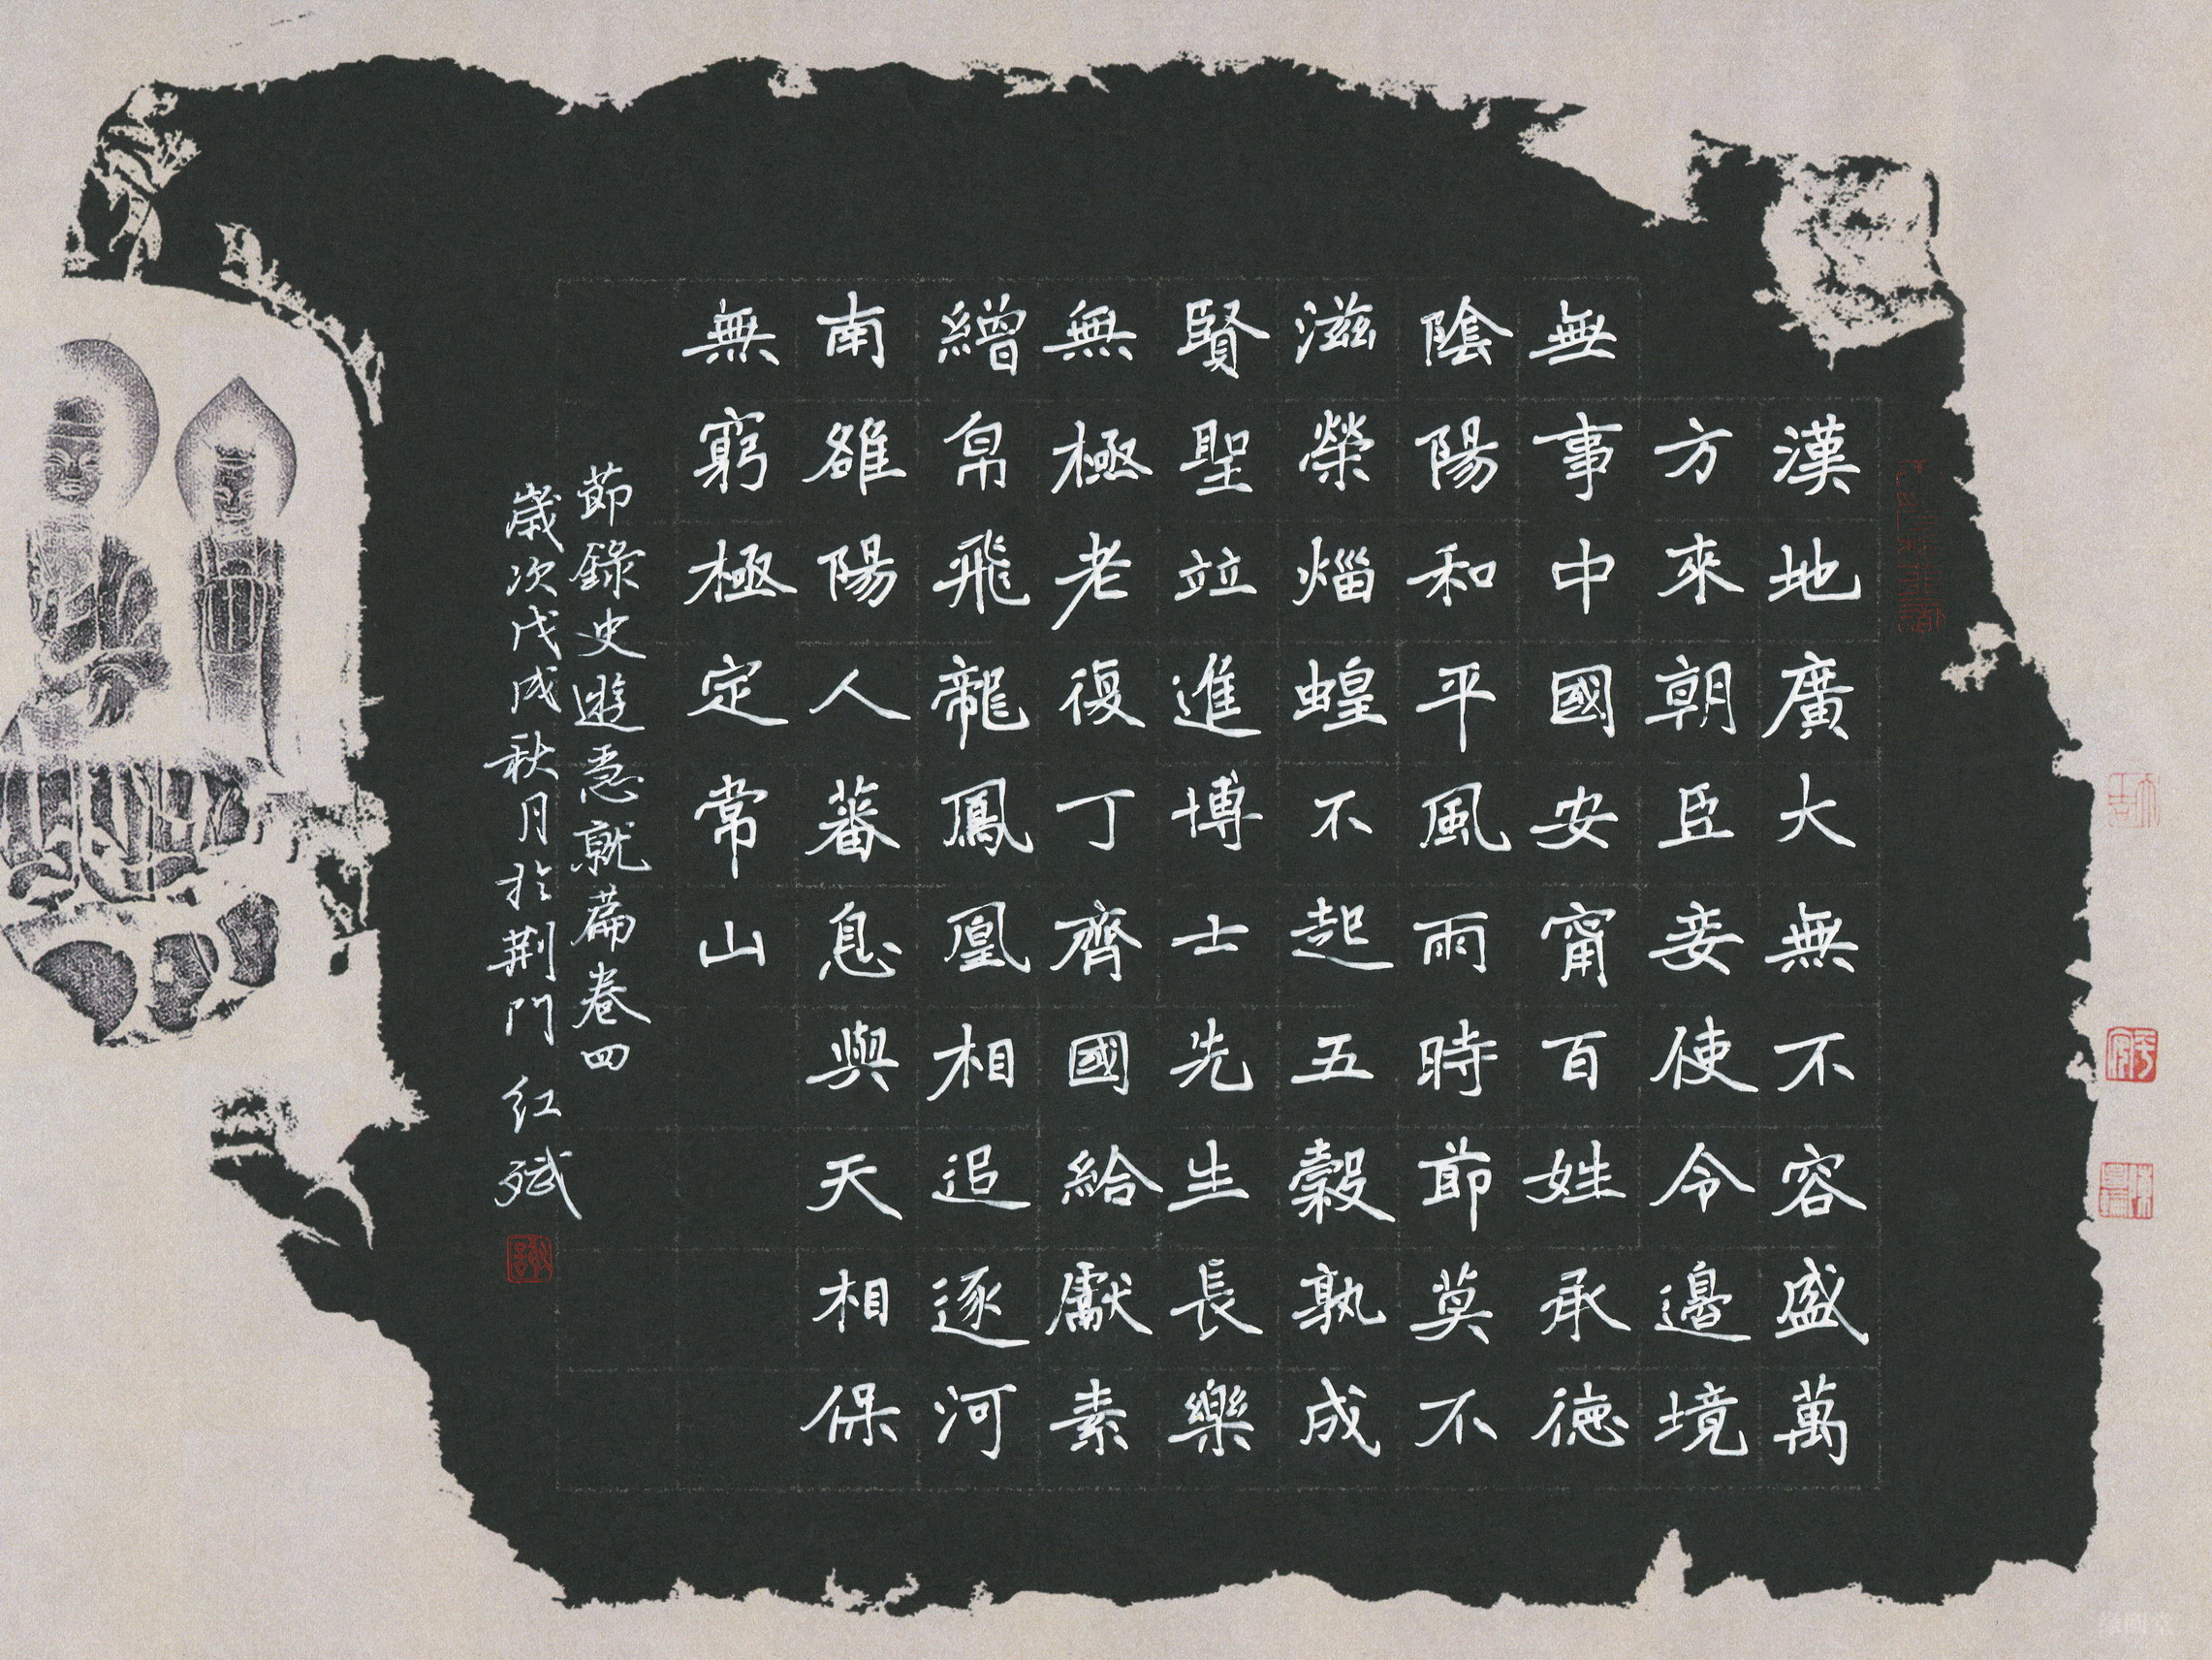 漢地廣大無不容盛萬
方來朝臣妾使令邊境
無事中國安甯百姓承德
陰陽和平風雨時節莫不
滋榮災蝗不起五穀孰成
賢聖竝進博士先生長樂
無極老復丁齊國給獻素
繒帛飛龍鳳凰相追逐河
南雒陽人蕃息與天相保
無窮極定常山
節錄史游急就篇卷四
歲次戊戌秋月於荆門 红斌